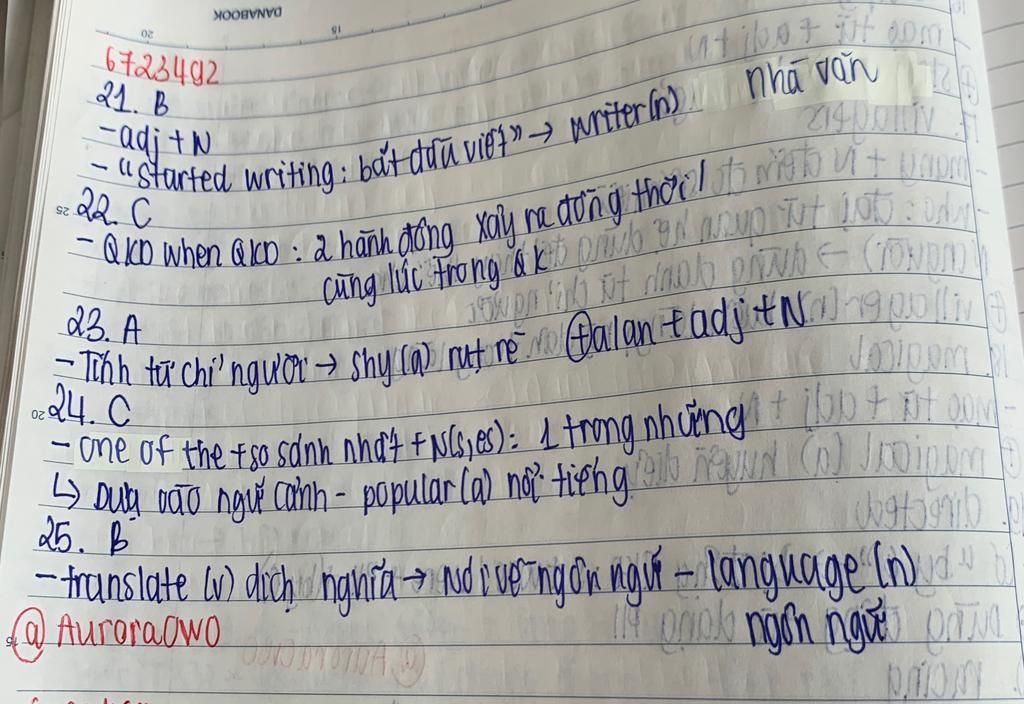 DANABOOK
6723492
21. B
- adj + N
- "started writing: bắt đầu viết" → writer (n) nhà văn
22. C
- QKD when QKD: 2 hành động xảy ra đồng thời /
cùng lúc trong QK
23. A
- Tính từ chỉ người → shy (a) rụt rè ⊕ a/an + adj + N
24. C
- one of the + so sánh nhất + N(s,es): 1 trong những
↳ Dựa vào ngữ cảnh - popular (a) nổi tiếng
25. B
- translate (v) dịch nghĩa → Nói về ngôn ngữ - language (n)
ngôn ngữ
@AuroraOWO